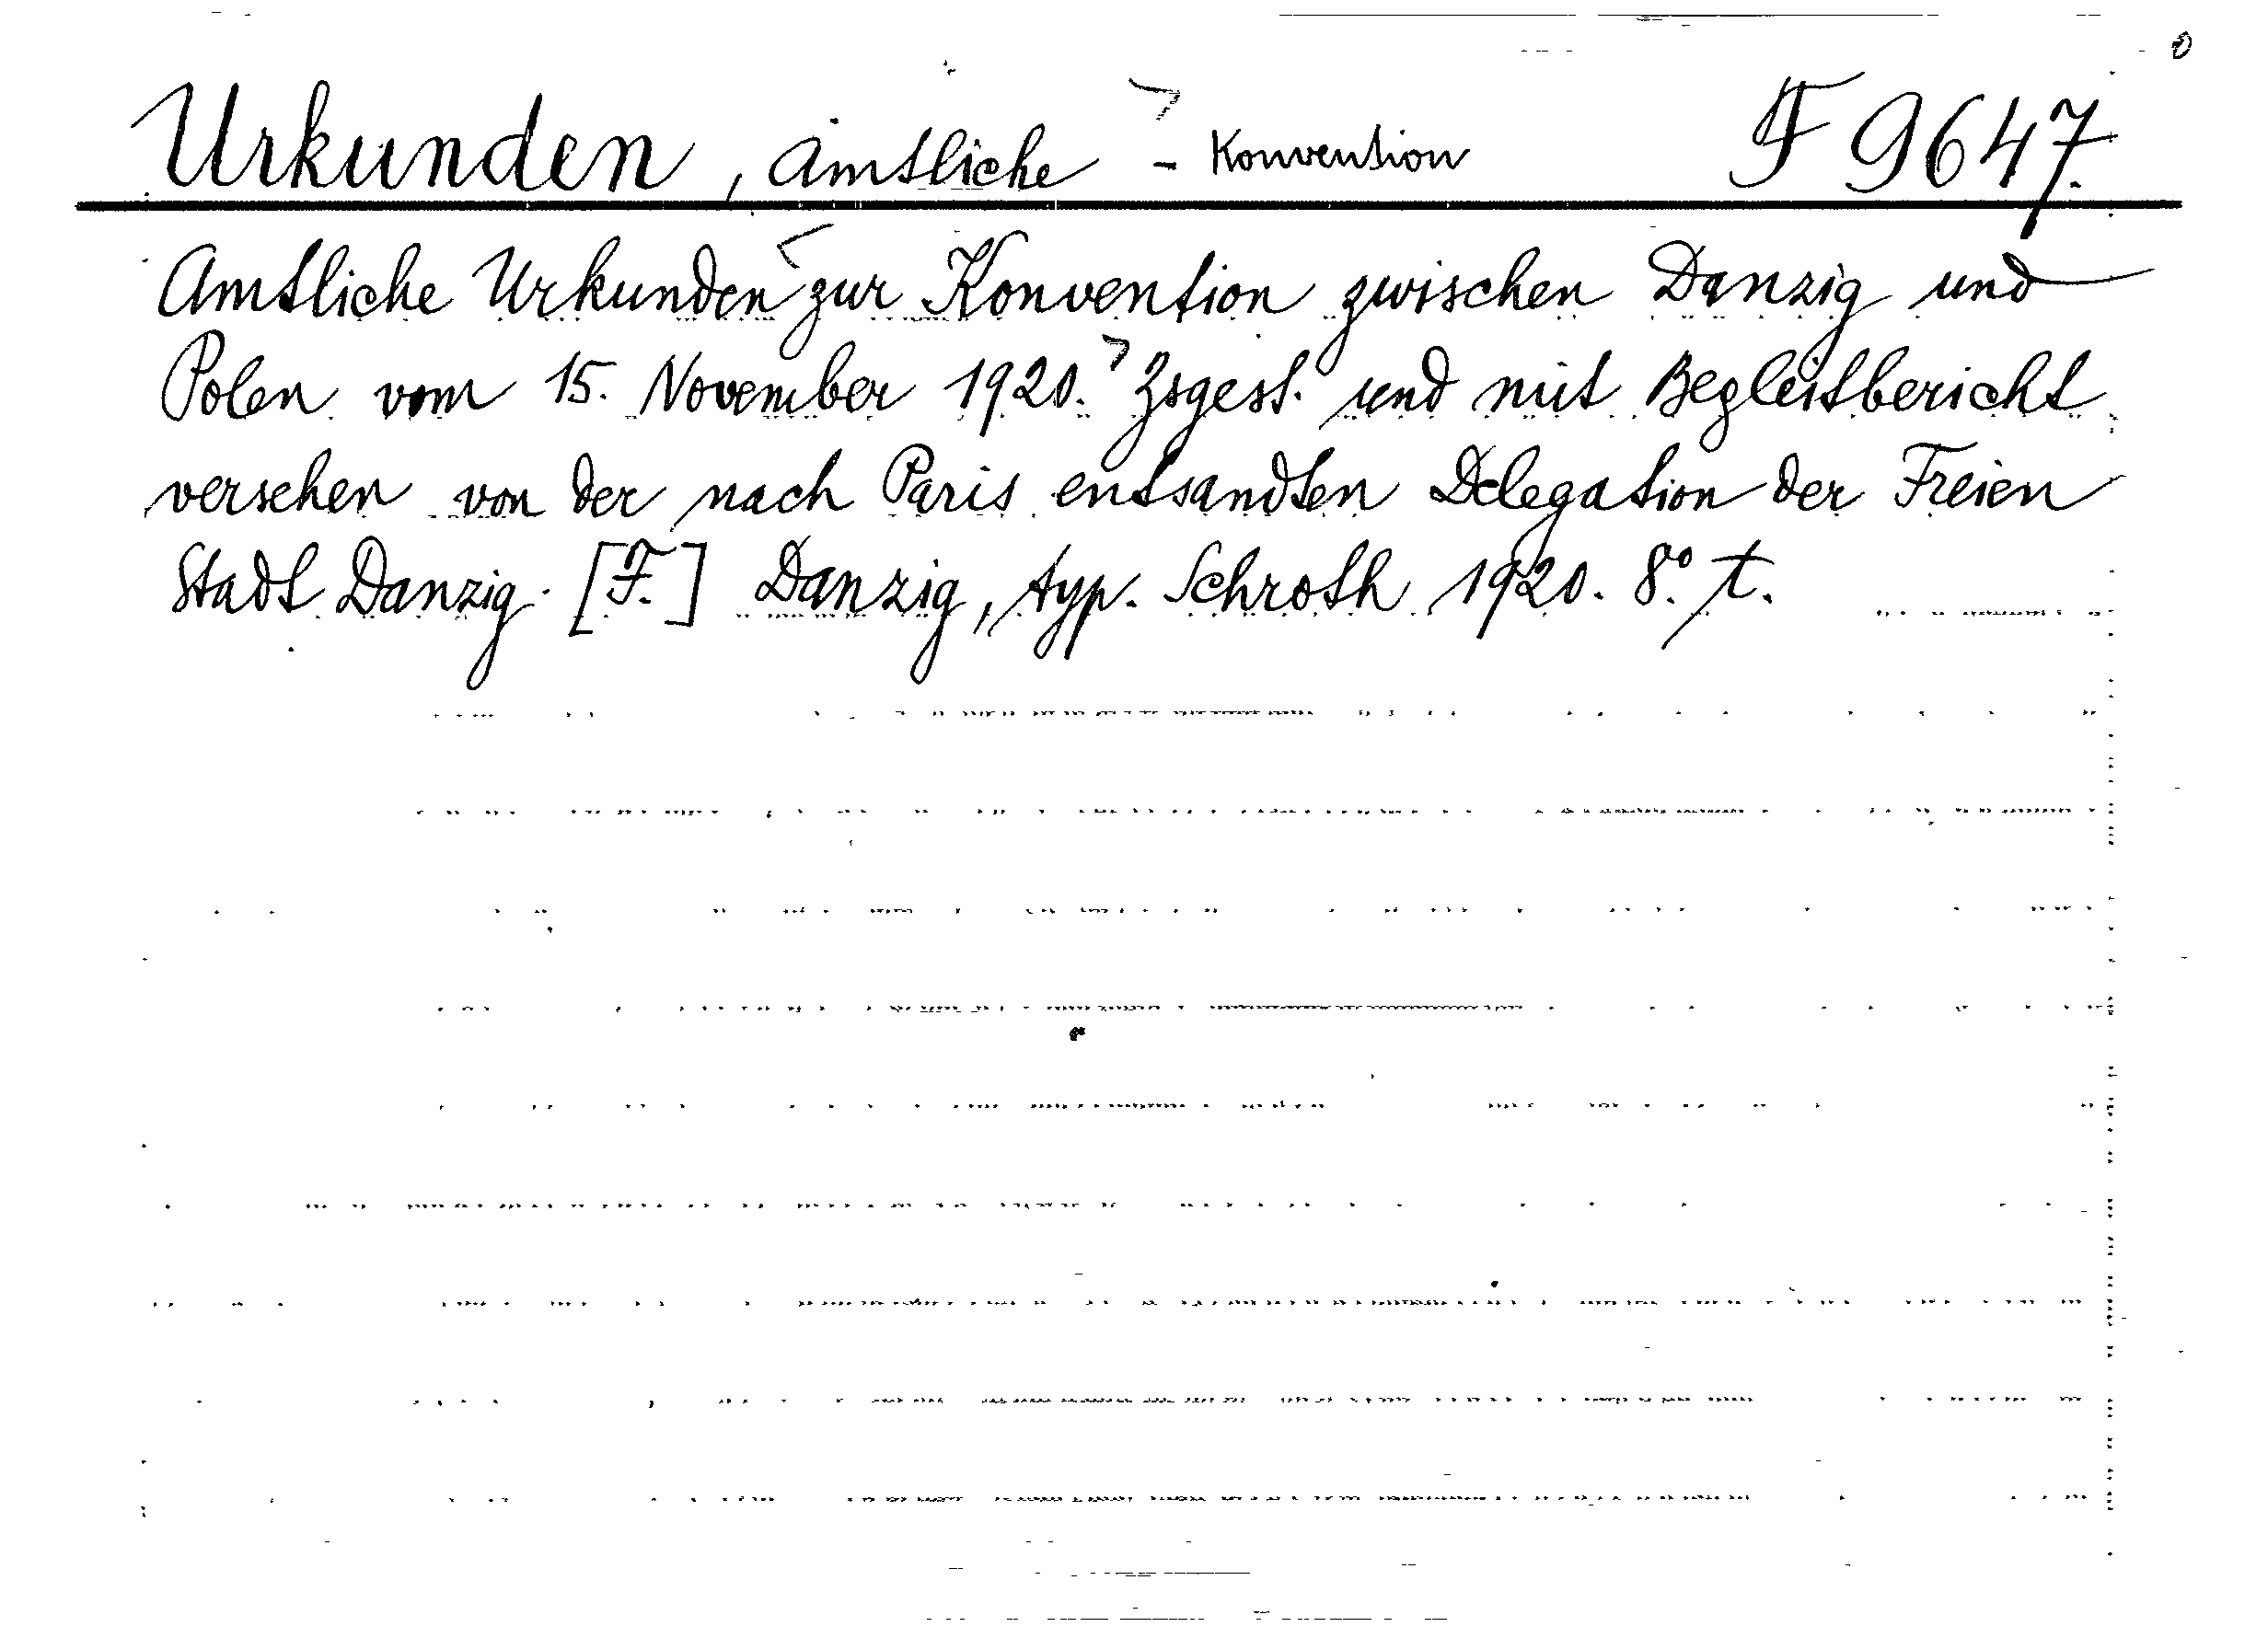 Urkunden, amtliche - Konvention F 9647.
Amtliche Urkunden zur Konvention zwischen Danzig und
Polen vom 15. November 1920. Zsgest. und mit Begleitbericht
versehen von der nach Paris entsandten Delegation der Freien
Stadt Danzig. [F.] Danzig, typ. Schroth 1920. 8° t.